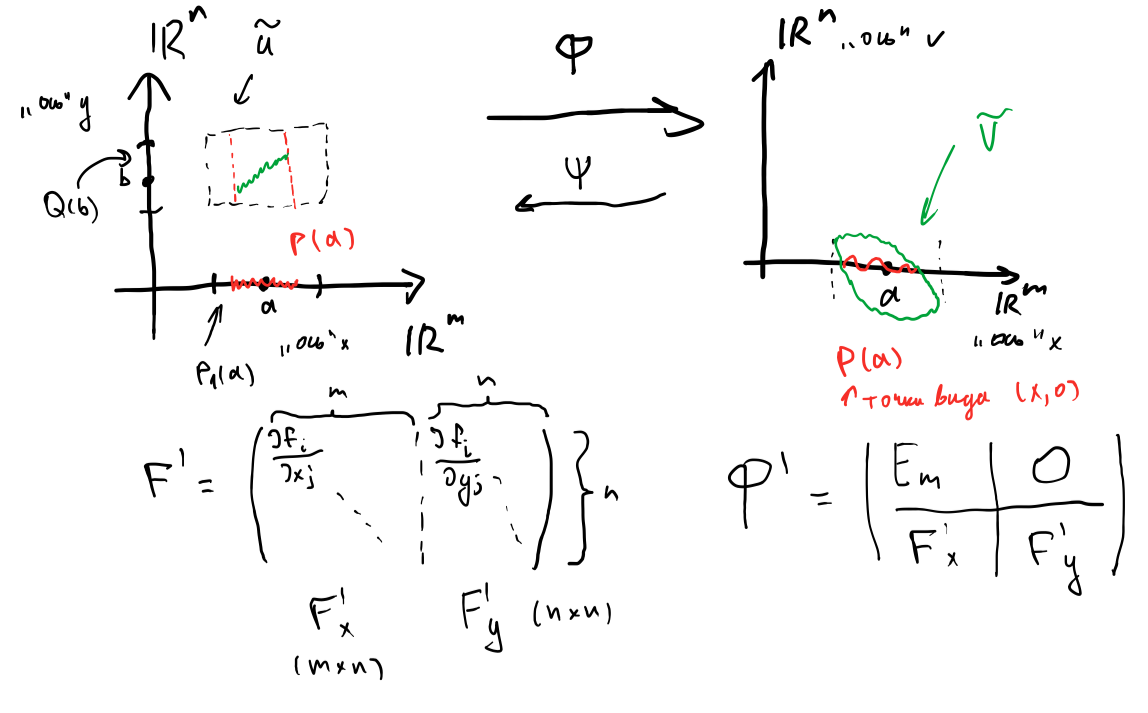 ℝⁿ
ũ
„ось" y
b
Q(b)
P(a)
a
P₁(a)
„ось" x
ℝᵐ
Φ
Ψ
ℝⁿ „ось" v
Ṽ
a
ℝᵐ
„ось" x
P(a)
↑ точки вида (x, 0)
m
n
F' = ( ∂fᵢ/∂xⱼ ¦ ∂fᵢ/∂yⱼ ) } n
F'ₓ
(m×n)
F'y (n×n)
Φ' = ( Eₘ | 0
F'ₓ | F'y )